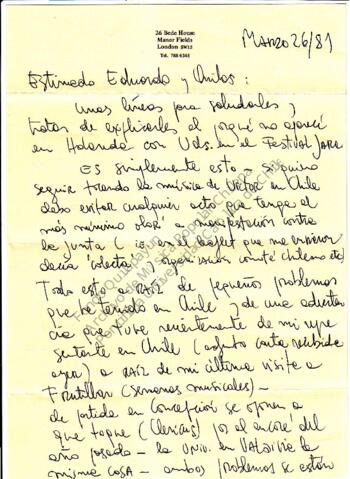 26 Bede House
Manor Fields
London SW15
Tel. 788 6343
Marzo 26/81
Estimado Eduardo y Quilas:
Unas líneas para saludarles y
tratar de explicarles el porqué no aparecí
en Holanda con Uds. en el Festival Jara
Es simplemente esto – si quiero
seguir tocando la música de Victor en Chile
debo evitar cualquier acto que tenga el
más mínimo olor a manifestación contra
la Junta ( en el leaflet que me
decía "colecta comité chileno etc)
Todo esto a raíz de pequeños problemas
que he tenido en Chile y de una
que tuve recientemente de mi
sentante en Chile (adjunto carta recibida
ayer) a raíz de mi última visita a
Frutillar (semanas musicales) –
de partida en Concepción se oponen a
que toque por el encore del
año pasado – la Univ. en Valdivia la
misma cosa – ambos problemas se están